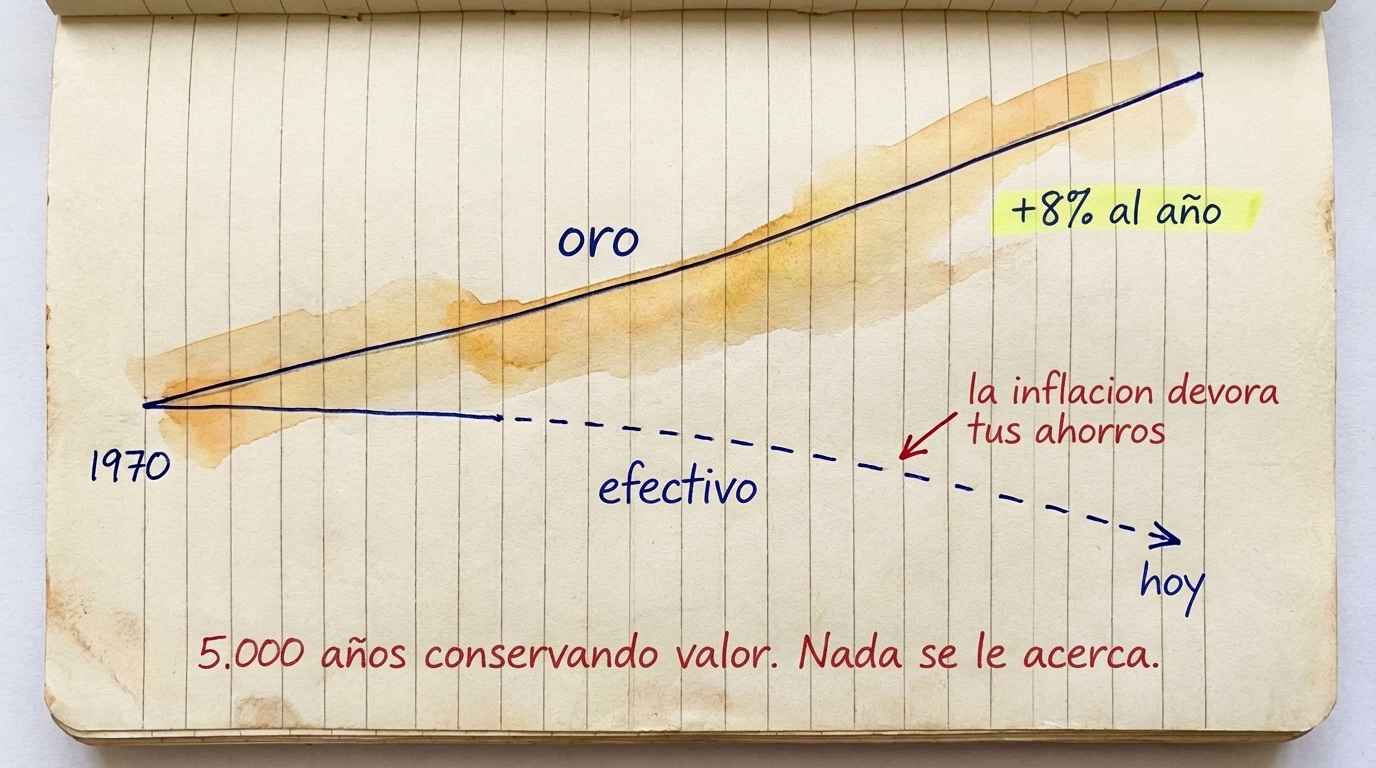 oro
+8% al año
la inflacion devora
tus ahorros
1970
efectivo
hoy
5.000 años conservando valor. Nada se le acerca.